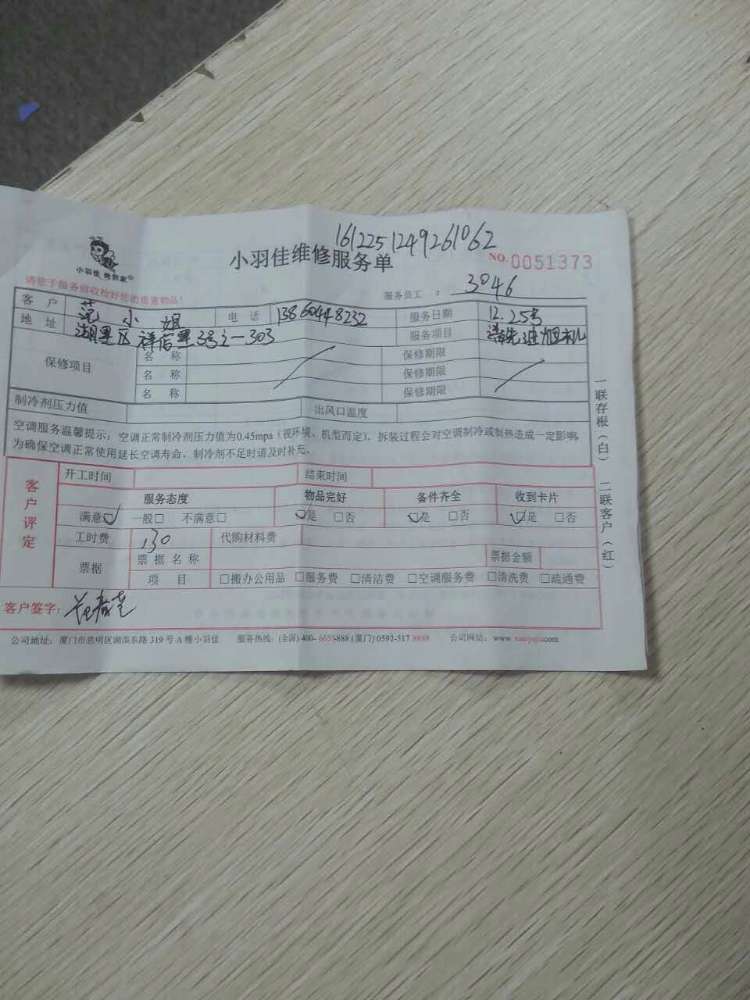 1612251249261062
小羽佳维修服务单
NO.0051373
小羽佳
请您于服务前收检好您的贵重物品!
服务员工 : 3046
客户 范小姐 电话 13860448232 服务日期 12.25号
地址 湖里区祥店里3号之一303 服务项目
保修项目 名称 保修期限
名称 保修期限
名称 保修期限
制冷剂压力值 出风口温度
空调服务温馨提示:空调正常制冷剂压力值为0.45mpa(视环境、机型而定),拆装过程会对空调制冷或制热造成一定影响,
为确保空调正常使用延长空调寿命,制冷剂不足时请及时补充。
客户评定
开工时间 结束时间
服务态度 物品完好 备件齐全 收到卡片
满意☑ 一般□ 不满意□ ☑是 □否 ☑是 □否 ☑是 □否
工时费 130 代购材料费
票据 票据名称 票据金额
项目 □搬办公用品 □服务费 □清洁费 □空调服务费 □清洗费 □疏通费
客户签字:
公司地址:厦门市思明区湖滨东路319号A幢小羽佳 服务热线:(全国)400-6658888 (厦门)0592-517 8888 公司网站:www.xiaoyujia.com
一联存根(白) 二联客户(红)